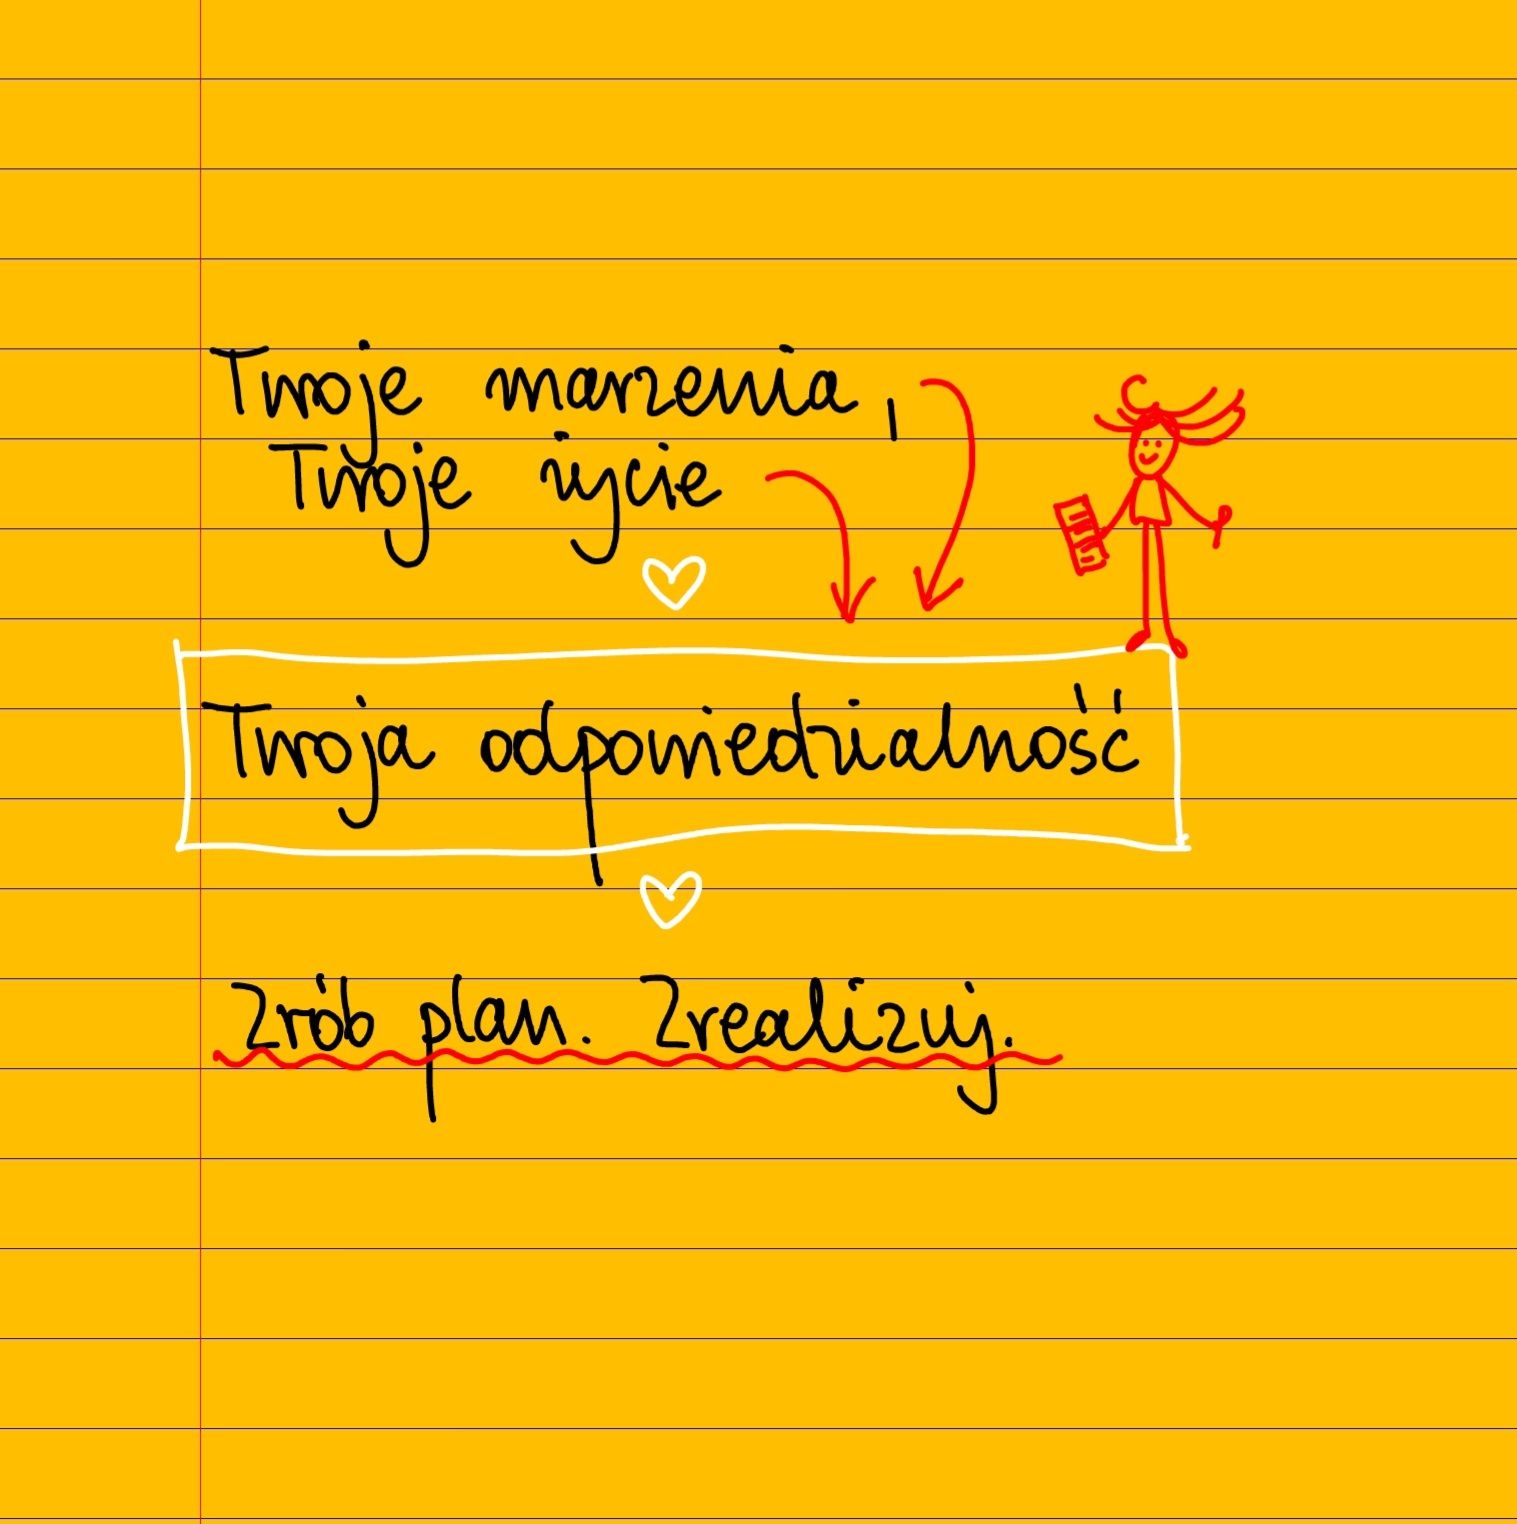 Twoje marzenia,
Twoje życie
Twoja odpowiedzialność
Zrób plan. Zrealizuj.